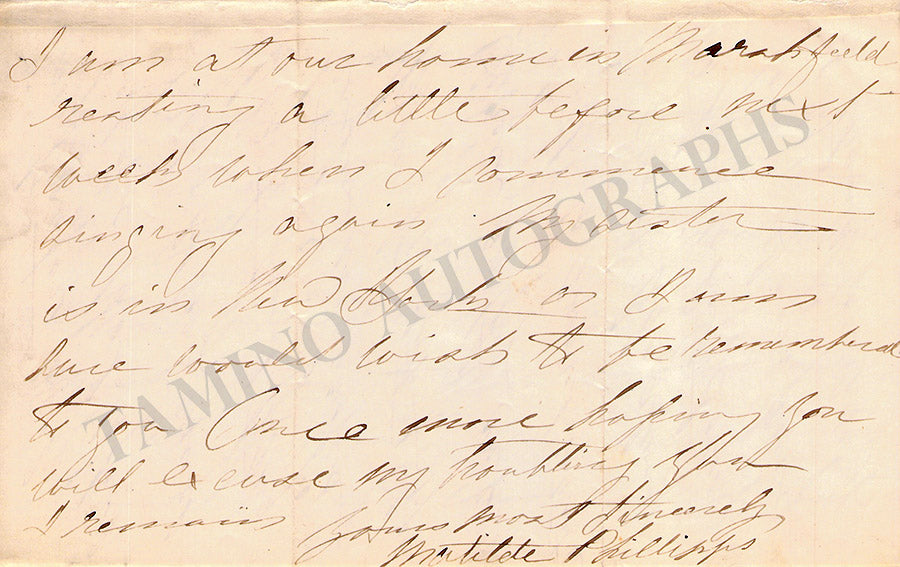 I am at our home in Marshfield
resting a little before next
week when I commence
singing again. My sister
is in New York or I am
sure would wish to be remembered
to you Once more hoping you
will excuse my troubling you
I remain yours most sincerely
Matilde Phillipps
TAMINO AUTOGRAPHS